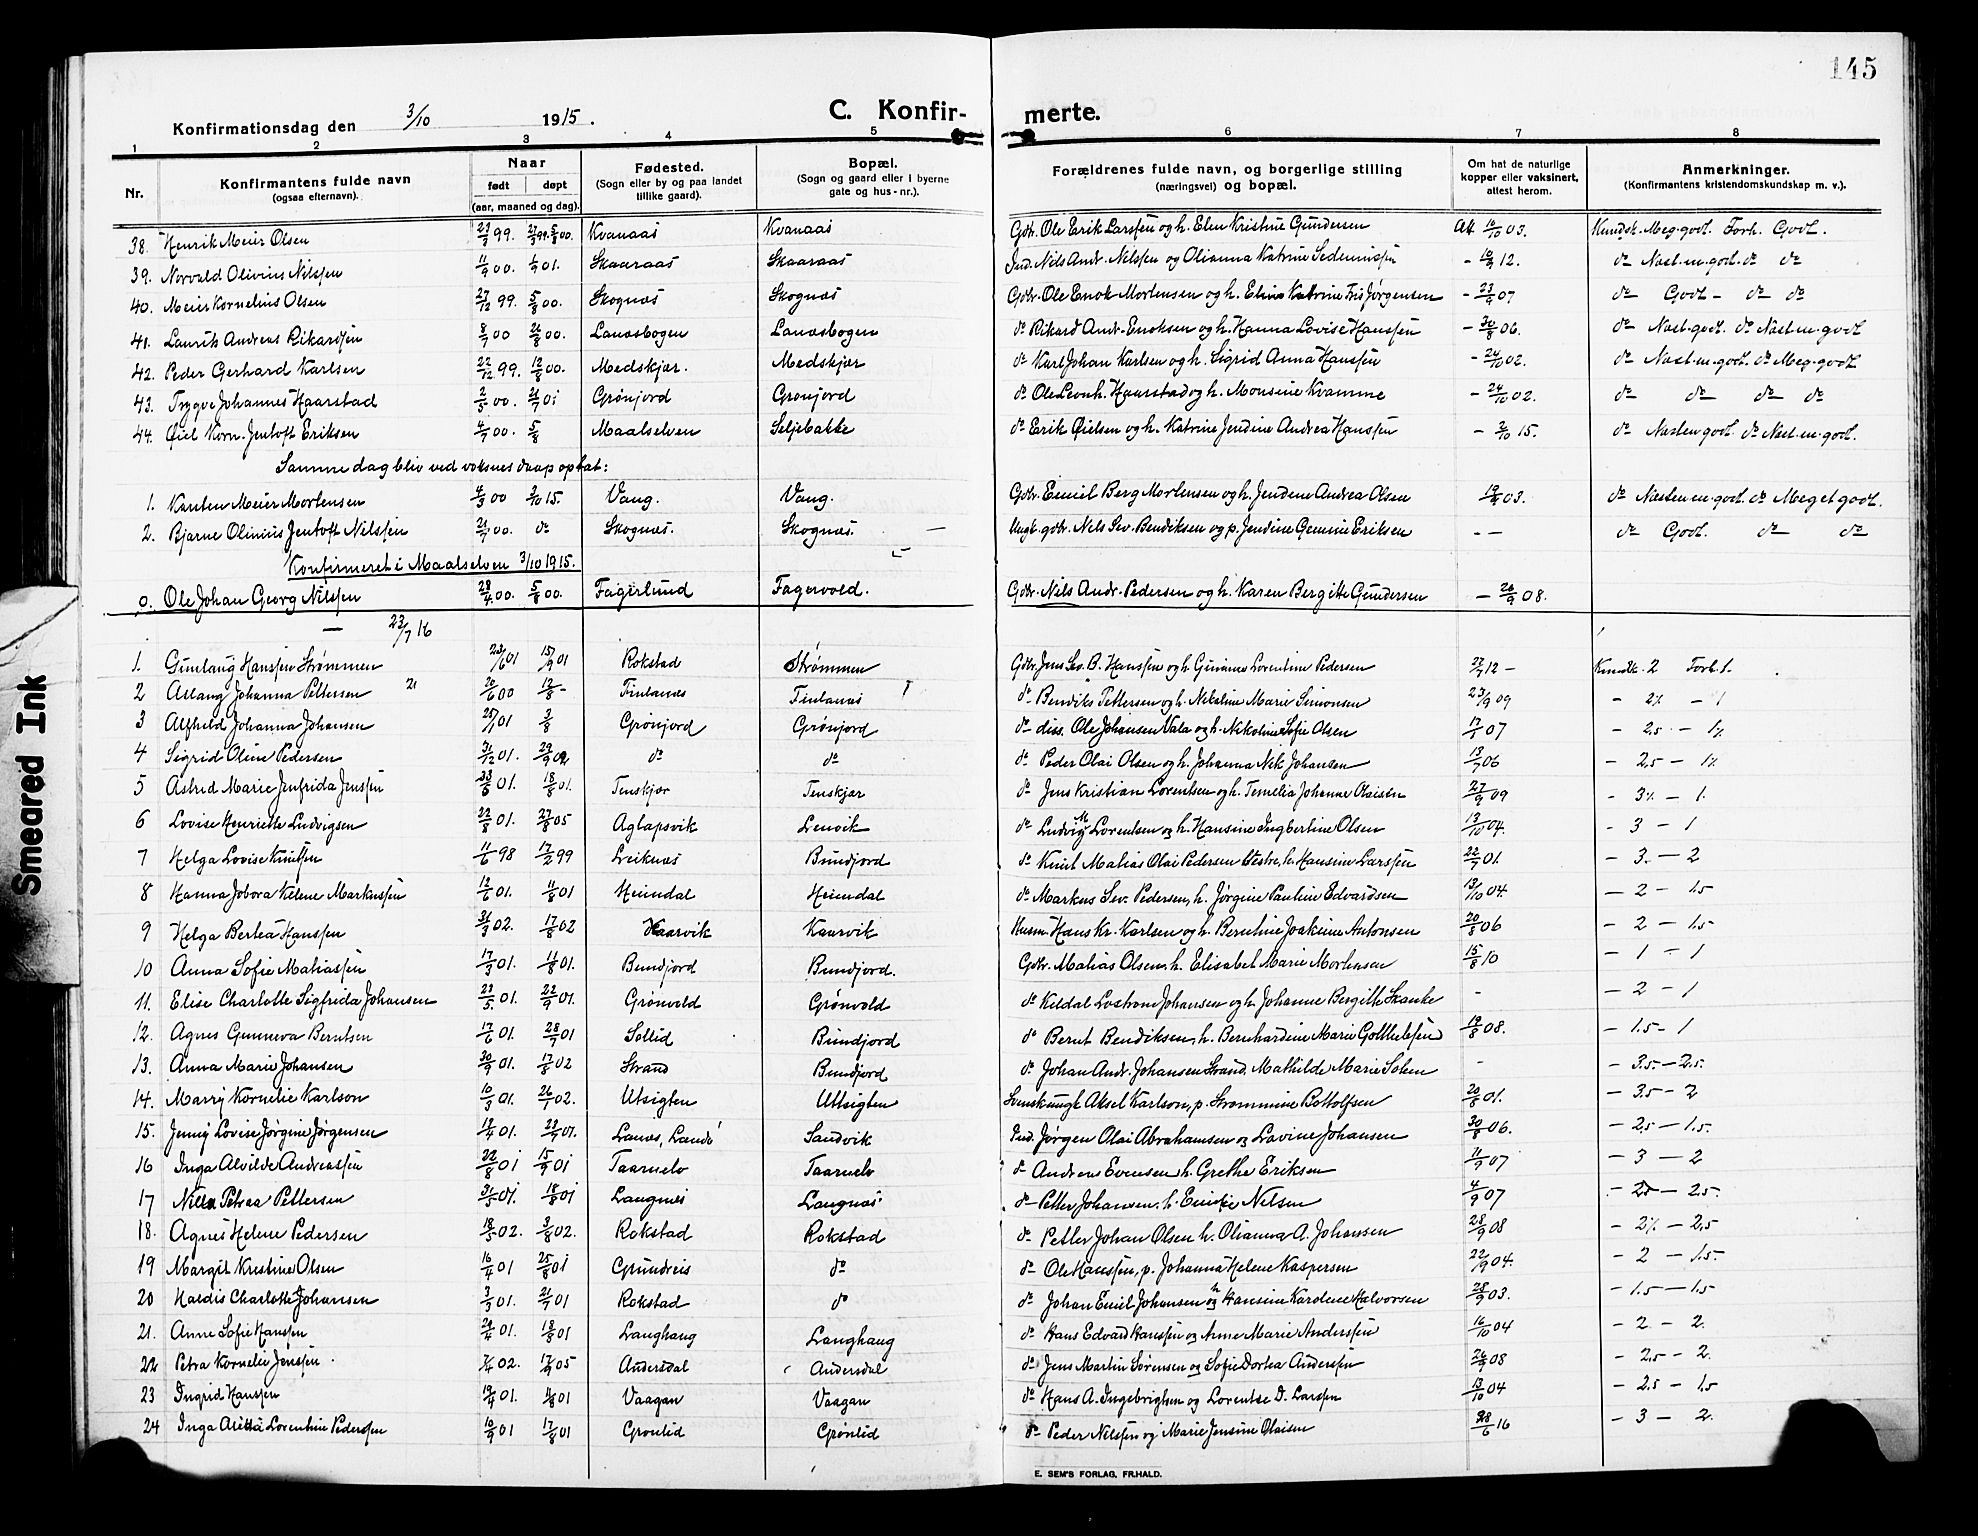 145
Smeared Ink
Konfirmationsdag den 3/10 1915.
C. Konfir- merte.
1 2 3 4 5 6 7 8
Nr. Konfirmantens fulde navn (ogsaa efternavn). Naar født døpt (aar, maaned og dag). Fødested. (Sogn eller by og paa landet tillike gaard). Bopæl. (Sogn og gaard eller i byerne gate og hus-nr.). Forældrenes fulde navn, og borgerlige stilling (næringsvei) og bopæl. Om hat de naturlige kopper eller vaksinert, attest herom. Anmerkninger. (Konfirmantens kristendomskundskap m. v.).
38. Henrik Meier Olsen 99. Kvanaas Kvanaas Gdbr. Ole Erik Larssen og h. Elen Kristine Gundersen 03. Kundsk. Meg. godt. Forh. Godt.
39. Norvald Olivius Nilssen 11/9 00. 1/9 01. Skaaraas Skaaraas Ind. Nils Andr. Nilssen og Olianna Katrine 12. do Næst. en. godt. do do
40. Meier Kornelius Olsen 27/12 99. 5/8 00. Skognæs Skognæs Gdbr. Ole Enok Mortensen og h. Katrine Jørgensen - 23/9 07 do Godt - do do
41. Laurits Andreas Rikardsen 8/7 00 26/8 00. Lanæsbogen Lanæsbogen do Rikard Andr. Enoksen og h. Hanna Lovise Hanssen - 30/8 06. do Næst. godt. do Næst. en. godt
42. Peder Gerhard Karlsen 22/12 99. 12/8 00. Medskjær. Medskjær do Karl Johan Karlsen og h. Sigrid Anna Hanssen - 24/10 02. do Næst. en. godt. do Meg. godt
43. Trygve Johannes Haarstad 2/5 00. 01 Grønjord Grønjord do Ole Leonh. Haarstad og h. Monsine Kvamme - 24/10 02. do do do do
44. Øiel Korn. Jentoft Eriksen 4/7 00. 5/8 Maalselven Seljebakke do Erik Øielsen og h. Katrine Jendine Andrea Hanssen - 2/10 15. do Næsten godt. do Næst. en. godt.
Samme dag blev ved voksnes daap optat:
1. Karsten Meier Mortensen 4/3 00 3/10 15. Vang. Vang. Gdbr. Emil Berg Mortensen og h. Jendine Andrea Olsen 03. do Næsten en. godt. do Meget godt.
2. Bjarne Olinius Jentoft Nilssen 21/7 00. do Skognæs. Skognæs. Ungk. gdbr. Nils Sev. Bendiksen og p. Jendine Eriksen - - do Godt. do do
Konfirmeret i Maalselven 3/10 1915.
0. Ole Johan Georg Nilssen 28/4 00. 5/8 00. Fagerlund Fagervold. Gdbr. Nils Andr. Pedersen og h. Karen Bergitte Gundersen - 26/9 08.
— 23/7 16
1. Gunlaug Hanssen Strømmen 23/6 01 15/9 01 Rokstad Strømmen Gdbr. Jens Sev. B. Hanssen og h. Lorentine Pedersen 12 - Kundsk. 2 Forh. 1.
2 Aslaug Johanna Pettersen 21 20/6 00 12/8 - Finlanæs Finlanæs do Bendiks Pettersen og h. Nikoline Marie Simonsen 23/9 09 - 2½ - 1
3 Alfhild Johanna Johansen 01 2/8 Grønjord Grønjord do diss. Ole Johansen Vala og h. Nikoline Sofie Olsen 07 - 2,5 - 1½
4 Sigrid Oline Pedersen 31/12 01. 29/9 02 do do do Peder Olai Olsen og h. Johanna Nik. Johansen 13/7 06 - 2,5 - 1½
5 Astrid Marie Jenfrida Jenssen 01. 18/8 01. Tenskjær Tenskjær do Jens Kristian Lorentsen og h. Johanne Olaisen 27/9 09 - 3½ - 1.
6 Lovise Henriette Ludvigsen 22/8 01. 27/8 05 Aglapsvik Lenvik do Ludvig M. Lorentsen og h. Hansine Ingbertine Olsen 13/10 04. - 3 - 1
7 Helga Lovise Knutsen 11/6 98 17/2 99 Leiknæs Bundjord do Knut Matias Olai Pedersen Vestre, h. Hansine Larssen 22/9 01. - 3. - 2
8 Hanna Jobora Helene Markussen 12/6 01. 11/8 01 Heimdal Heimdal do Markus Sev. Pedersen, h. Jørgine Pauline Edvardsen 13/10 04. - 2 - 1.5
9 Helga Bertea Hanssen 02. 17/8 02 Kaarvik Kaarvik Husm. Hans Kr. Karlsen og h. Berntine Joakime Antonsen 20/8 06 - 2 - 1.5
10 Anna Sofie Matiassen 17/3 01. 11/8 01. Bundjord Bundjord. Gdbr. Matias Olsen, h. Elisabet Marie Mortensen 15/8 10 - 1 - 1
11. Elise Charlotte Sigfrida Johansen 23/5 01. 22/9 01. Grønvold Grønvold do Keldal Johansen og h. Johanne Bergitte Skanke - - 2 - 1
12. Agnes Gunneva Berntsen 17/6 01. 28/7 01 Sollid Bundjord do Bernt Bendiksen, h. Bernhardine Marie Gotthelfsen 19/8 08. - 1.5 - 1
13. Anna Marie Johansen 30/9 01. 17/8 02 Strand Bundjord do Johan Andr. Johansen Strand, Mathilde Marie - - 3.5. - 2.5.
14. Marry Kornelie Karlson 10/3 01. 26/1 02. Utsigten Utsigten Svensk ungk. Aksel Karlson, p. Strømmine Bottolfsen 20/8 01. - 3.5 - 2
15. Jenny Lovise Jørgine Jørgensen 13/4 01. 01. Lanæs, Sandvik Ind. Jørgen Olai Abrahamsen og Lovine Johansen 30/8 06. - 2,5 - 1.5.
16 Inga Alvilde Andreassen 22/8 01 15/9 01 Taarnelv Taarnelv do Andreas Evensen, h. Grethe Eriksen 11/9 07 - 3 - 2
17 Petrea Pettersen 01. 18/8 01 Langnæs Langnæs do Petter Johansen, h. Nilsen 4/9 07 - 2,5 - 2,5.
18. Agnes Helene Pedersen 02. 3/8 02. Rokstad Rokstad do Petter Johan Olsen h. Olianna A. Johansen 28/9 08 - 2½ - 2,5
19 Margit Kristine Olsen 16/4 01 25/8 01 Grundreis do do Ole Hanssen, p. Johanna Helene Kaspersen 22/9 04. - 2 - 1.5.
20 Haldis Charlotte Johansen 3/3 01. 21/7 01 Rokstad do do Johan Emil Johansen og h Hansine Karoline Halvorsen 28/9 03. - 1.5 - 1.5
21. Anne Sofie Hanssen 01. 18/8 01 Langhaug Langhaug do Hans Edvard Hanssen og Anne Marie Anderssen 16/10 04 - 2 - 2.
22 Petra Kornelie Jenssen. 7/4 02. 05 Andersdal Andersdal do Jens Martin Sørensen og Sofie Dortea Anderssen 08 - 2,5 - 2.
23 Ingrid Hanssen 01. 11/8 01 Vaagan Vaagan do Hans A. Ingebrigtsen og Lorentse D. Larssen 13/10 04 - 2.5 - 1.5
24 Inga Lorentine Pederssen 10/9 01 17/8 01 Grønlid Grønlid do Peder Nilssen og Marie Jensine Olaisen 28/6 16 - 3 - 2.
E. SEM'S FORLAG, FR.HALD.